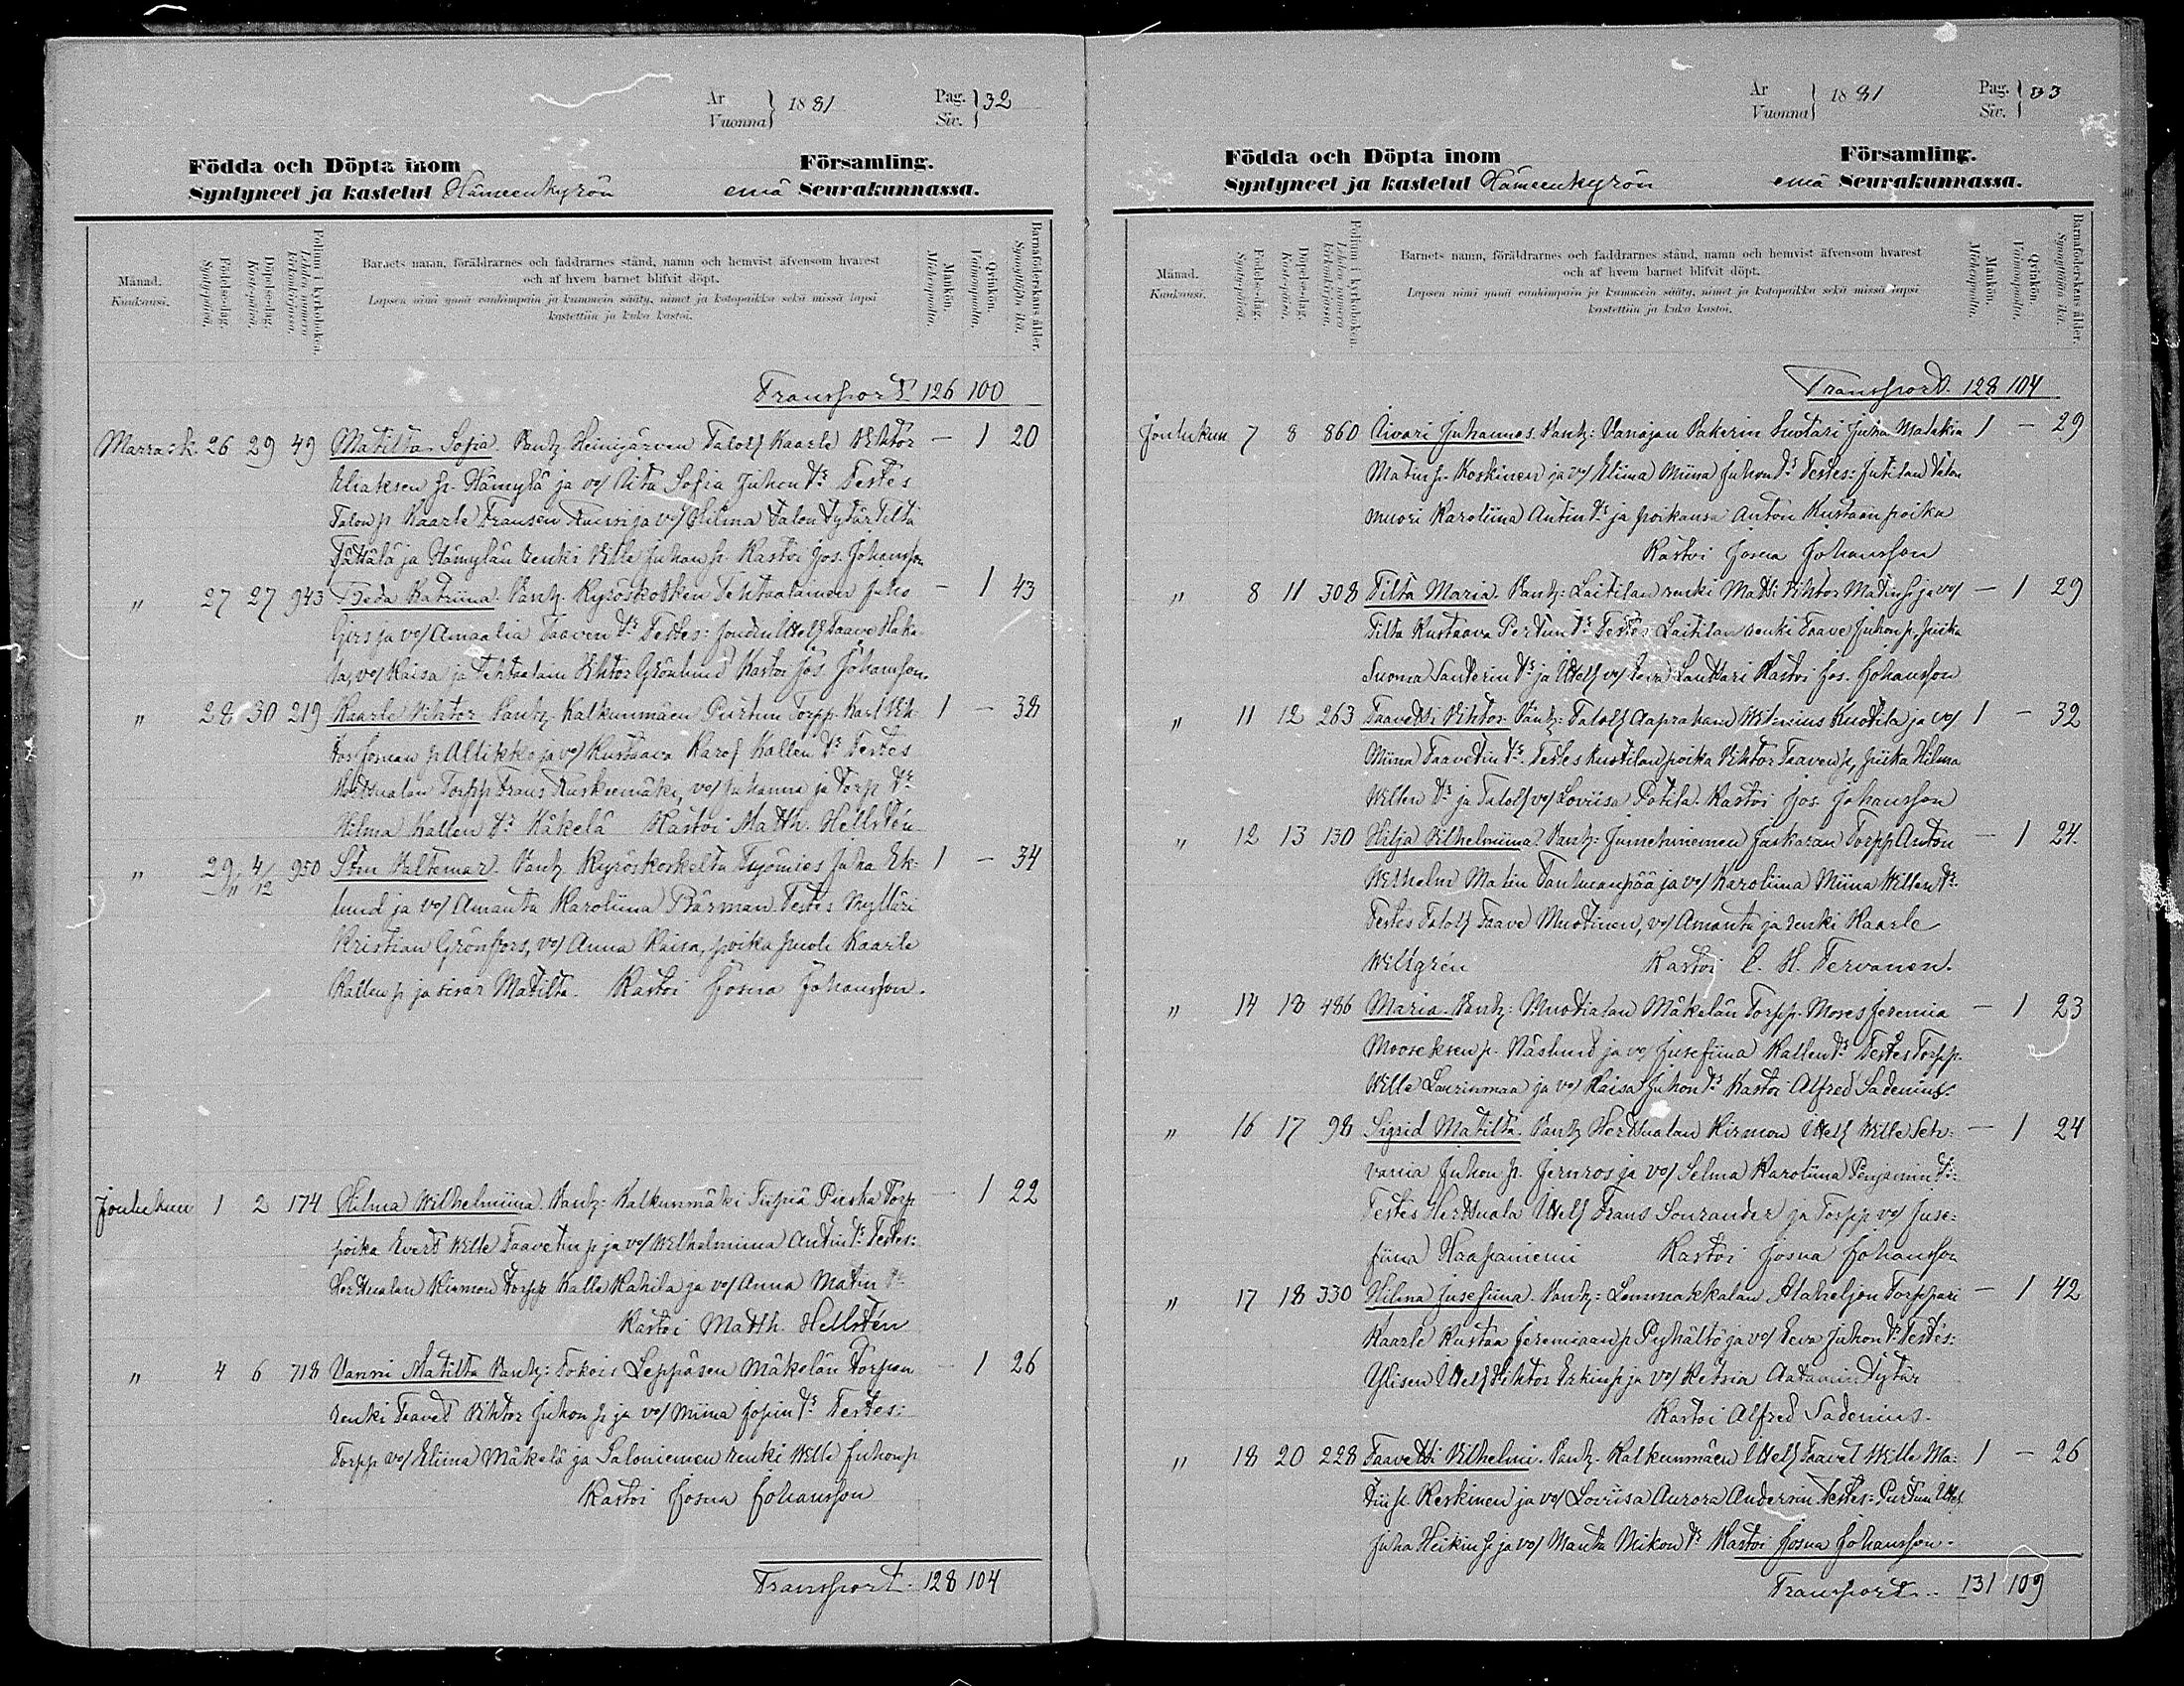 År Vuonna } 1881 Pag. Siv. } 32
Födda och Döpta inom Församling.
Syntyneet ja kastetut Hämeenkyrön emä Seurakunnassa.
Månad. Kuukausi.
Födelse-dag. Syntypäivä.
Döpelse-dag. Kastepäivä.
Folium i kyrkoboken. Lehden numero kirkonkirjassa.
Barnets namn, föräldrarnes och faddrarnes stånd, namn och hemvist äfvensom hvarest
och af hvem barnet blifvit döpt.
Lapsen nimi ynnä vanhimpain ja kummein sääty, nimet ja kotopaikka sekä missä lapsi
kastettiin ja kuka kastoi.
Mankön. Miehenpuolia.
Qvinkön. Vaimonpuolia.
Barnaföderskans ålder. Synnyttäjän ikä.
Transport 126 100
Marrask. 26 29 49 Matilta Sofia. Vanh. Heinijärven Taloll. Kaarle Vihtor — 1 20
Eliaksen p. Hämylä ja vo/ Aita Sofia Juhon tr Testes
Talon p Kaarle Fransen ja vo/ Hilma Talon tytär Tilta
ja Hämylän renki Ville Juhan p. Kastoi Jos. Johansson
" 27 27 943 Feda Katriina. Vanh. Kyröskosken Tehtaalainen Juho — 1 43
Girs ja vo/ Amaalia Taaven tr Testes: Taave
vo/ Kaisa ja Tehtaalain Vihtor Grönlund Kastoi Jos. Johansson.
" 28 30 219 Kaarle Vihtor Vanh. Kalkunmäen Purtun Torpp. Karl Vih- 1 — 38
tor Josuan p Allikko ja vo/ Kustaava Karol. Kallen tr Testes
Torpp Frans Ruskeemäki, vo/ Juhanna ja Torp tr
Hilma Kallen tr Käkelä Kastoi Matth. Hellstén
" 29/11 4/12 950 Sten Valtemar. Vanh. Kyröskoskelta Työmies Juha Ek- 1 — 34
lund ja vo/ Amanta Karoliina Bärman. Testes Mylläri
Kristian Grönfors, vo/ Anna Kaisa, poika puoli Kaarle
Kallen p ja sisar Matilta. Kastoi Josua Johansson.
Joulukuu 1 2 174 Hilma Wilhelmiina. Vanh: Kalkunmäki Torp — 1 22
poika Evert Wille Taavetin p ja vo/ Wilhelmiina Antin tr Testes:
Herttualan Kinmon Torpp Kalle Rahila ja vo/ Anna Matin tr
Kastoi Matth. Hellstén
" 4 6 718 Vanni Matilta Vanh: Tokois Leppäsen Mäkelän Torpan — 1 26
renki Taavet Vihtor Juhon p ja vo/ Miina Jopin tr Testes:
Torpp vo/ Eliina Mäkelä ja Saloniemen renki Wille Juhon p
Kastoi Josua Johansson
Transport. 128 104
År Vuonna } 1881 Pag. Siv. } 33
Födda och Döpta inom Församling.
Syntyneet ja kastetut Hämeenkyrön emä Seurakunnassa.
Månad. Kuukausi.
Födelse-dag. Syntypäivä.
Döpelse-dag. Kastepäivä.
Folium i kyrkoboken. Lehden numero kirkonkirjassa.
Barnets namn, föräldrarnes och faddrarnes stånd, namn och hemvist äfvensom hvarest
och af hvem barnet blifvit döpt.
Lapsen nimi ynnä vanhimpain ja kummein sääty, nimet ja kotopaikka sekä missä lapsi
kastettiin ja kuka kastoi.
Mankön. Miehenpuolia.
Qvinkön. Vaimonpuolia.
Barnaföderskans ålder. Synnyttäjän ikä.
Transport. 128 104
Joulukuu 7 8 860 Aivari Juhannes. Vanh: Vanajan Pakerin Suutari Juha 1 — 29
Matin p. Koskinen ja vo/ Eliina Miina Juhon tr Testes: Jutilan Talon
muori Karoliina Antin tr ja poikansa Anton Kustaan poika
Kastoi Josua Johansson
" 8 11 308 Tilta Maria. Vanh: Laitilan renki Matti Vihtor Matin p ja vo/ — 1 29
Tilta Kustaava Pertun tr Testes Laitilan renki Taave Juhon p, piika
Suoma Santerin tr ja Itell. vo/ Lanttari Kastoi Jos. Johansson
" 11 12 263 Taavetti Vihtor. Vanh: Taloll. Aaprahami Wilenius Kuotila ja vo/ 1 — 32
Miina Taavetin tr. Testes Kustilan poika Vihtor Taaven p, piika Hilma
Willen tr ja Taloll. vo/ Loviisa Potila. Kastoi Jos. Johansson
" 12 13 130 Hilja Vilhelmiina. Vanh: Jumesniemen Jaskaran Torpp. Anton — 1 24.
Wilhelm Matin Tanhuanpää ja vo/ Karoliina Miina Willen tr.
Testes Taloll. Taave Muotinen, vo/ Amanta ja renki Kaarle
Wellgrén Kastoi C. H. Tervanen.
" 14 18 486 Maria. Vanh: Muotialan Mäkelän Torpp. Moses Jeremia — 1 23
Mooseksen p. Näslund ja vo/ Jusefiina Kallen tr Testes Torpp.
Wille Laurinmaa ja vo/ Kaisa Juhon tr Kastoi Alfred Sadenius.
" 16 17 98 Sigrid Matilta. Vanh. Herttualan Kirmon Itell. Wille Sel- — 1 24
vania Juhon p. Jernros ja vo/ Selma Karoliina Penjamin tr:
Testes Herttuala Itell. Frans Sourander ja Torpp vo/ Juse-
fiina Haapaniemi Kastoi Josua Johansson
" 17 18 330 Hilma Jusefiina. Vanh: Lemmakkalan Mahnaljon Torppari — 1 42
Kaarle Kustaa Jeremiaan p Pyhältö ja vo/ Eeva Juhon tr Testes:
Ylisen Itell. Vihtor Erkin p ja vo/ Retsia Aatamin Tytär
Kastoi Alfred Sadenius.
" 18 20 228 Taavetti Vilhelmi. Vanh. Kalkunmäen Itell. Taavet Wille Ma- 1 — 26
tin p. Keskinen ja vo/ Loviisa Aurora Anderin. Testes: Purtun Itel.
Juha Heikin p ja vo/ Manta Mikon tr Kastoi Josua Johansson.
Transport.. 131 109